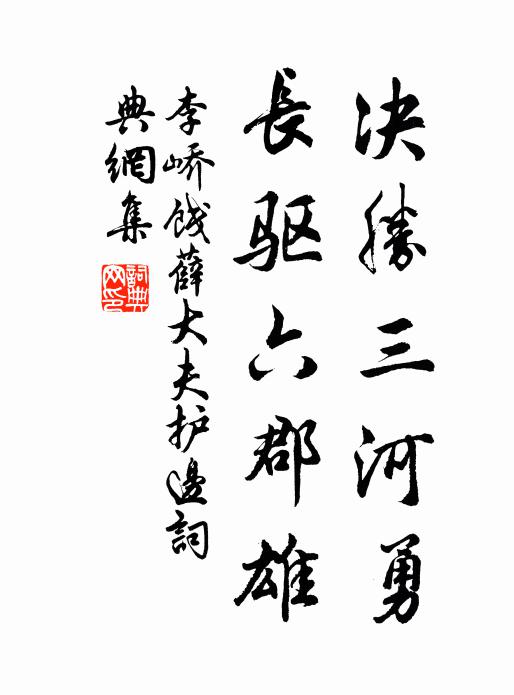 决勝三河勇
長驱六郡雄
李嶠餞薛大夫护邊詞
典網集
詞典網印